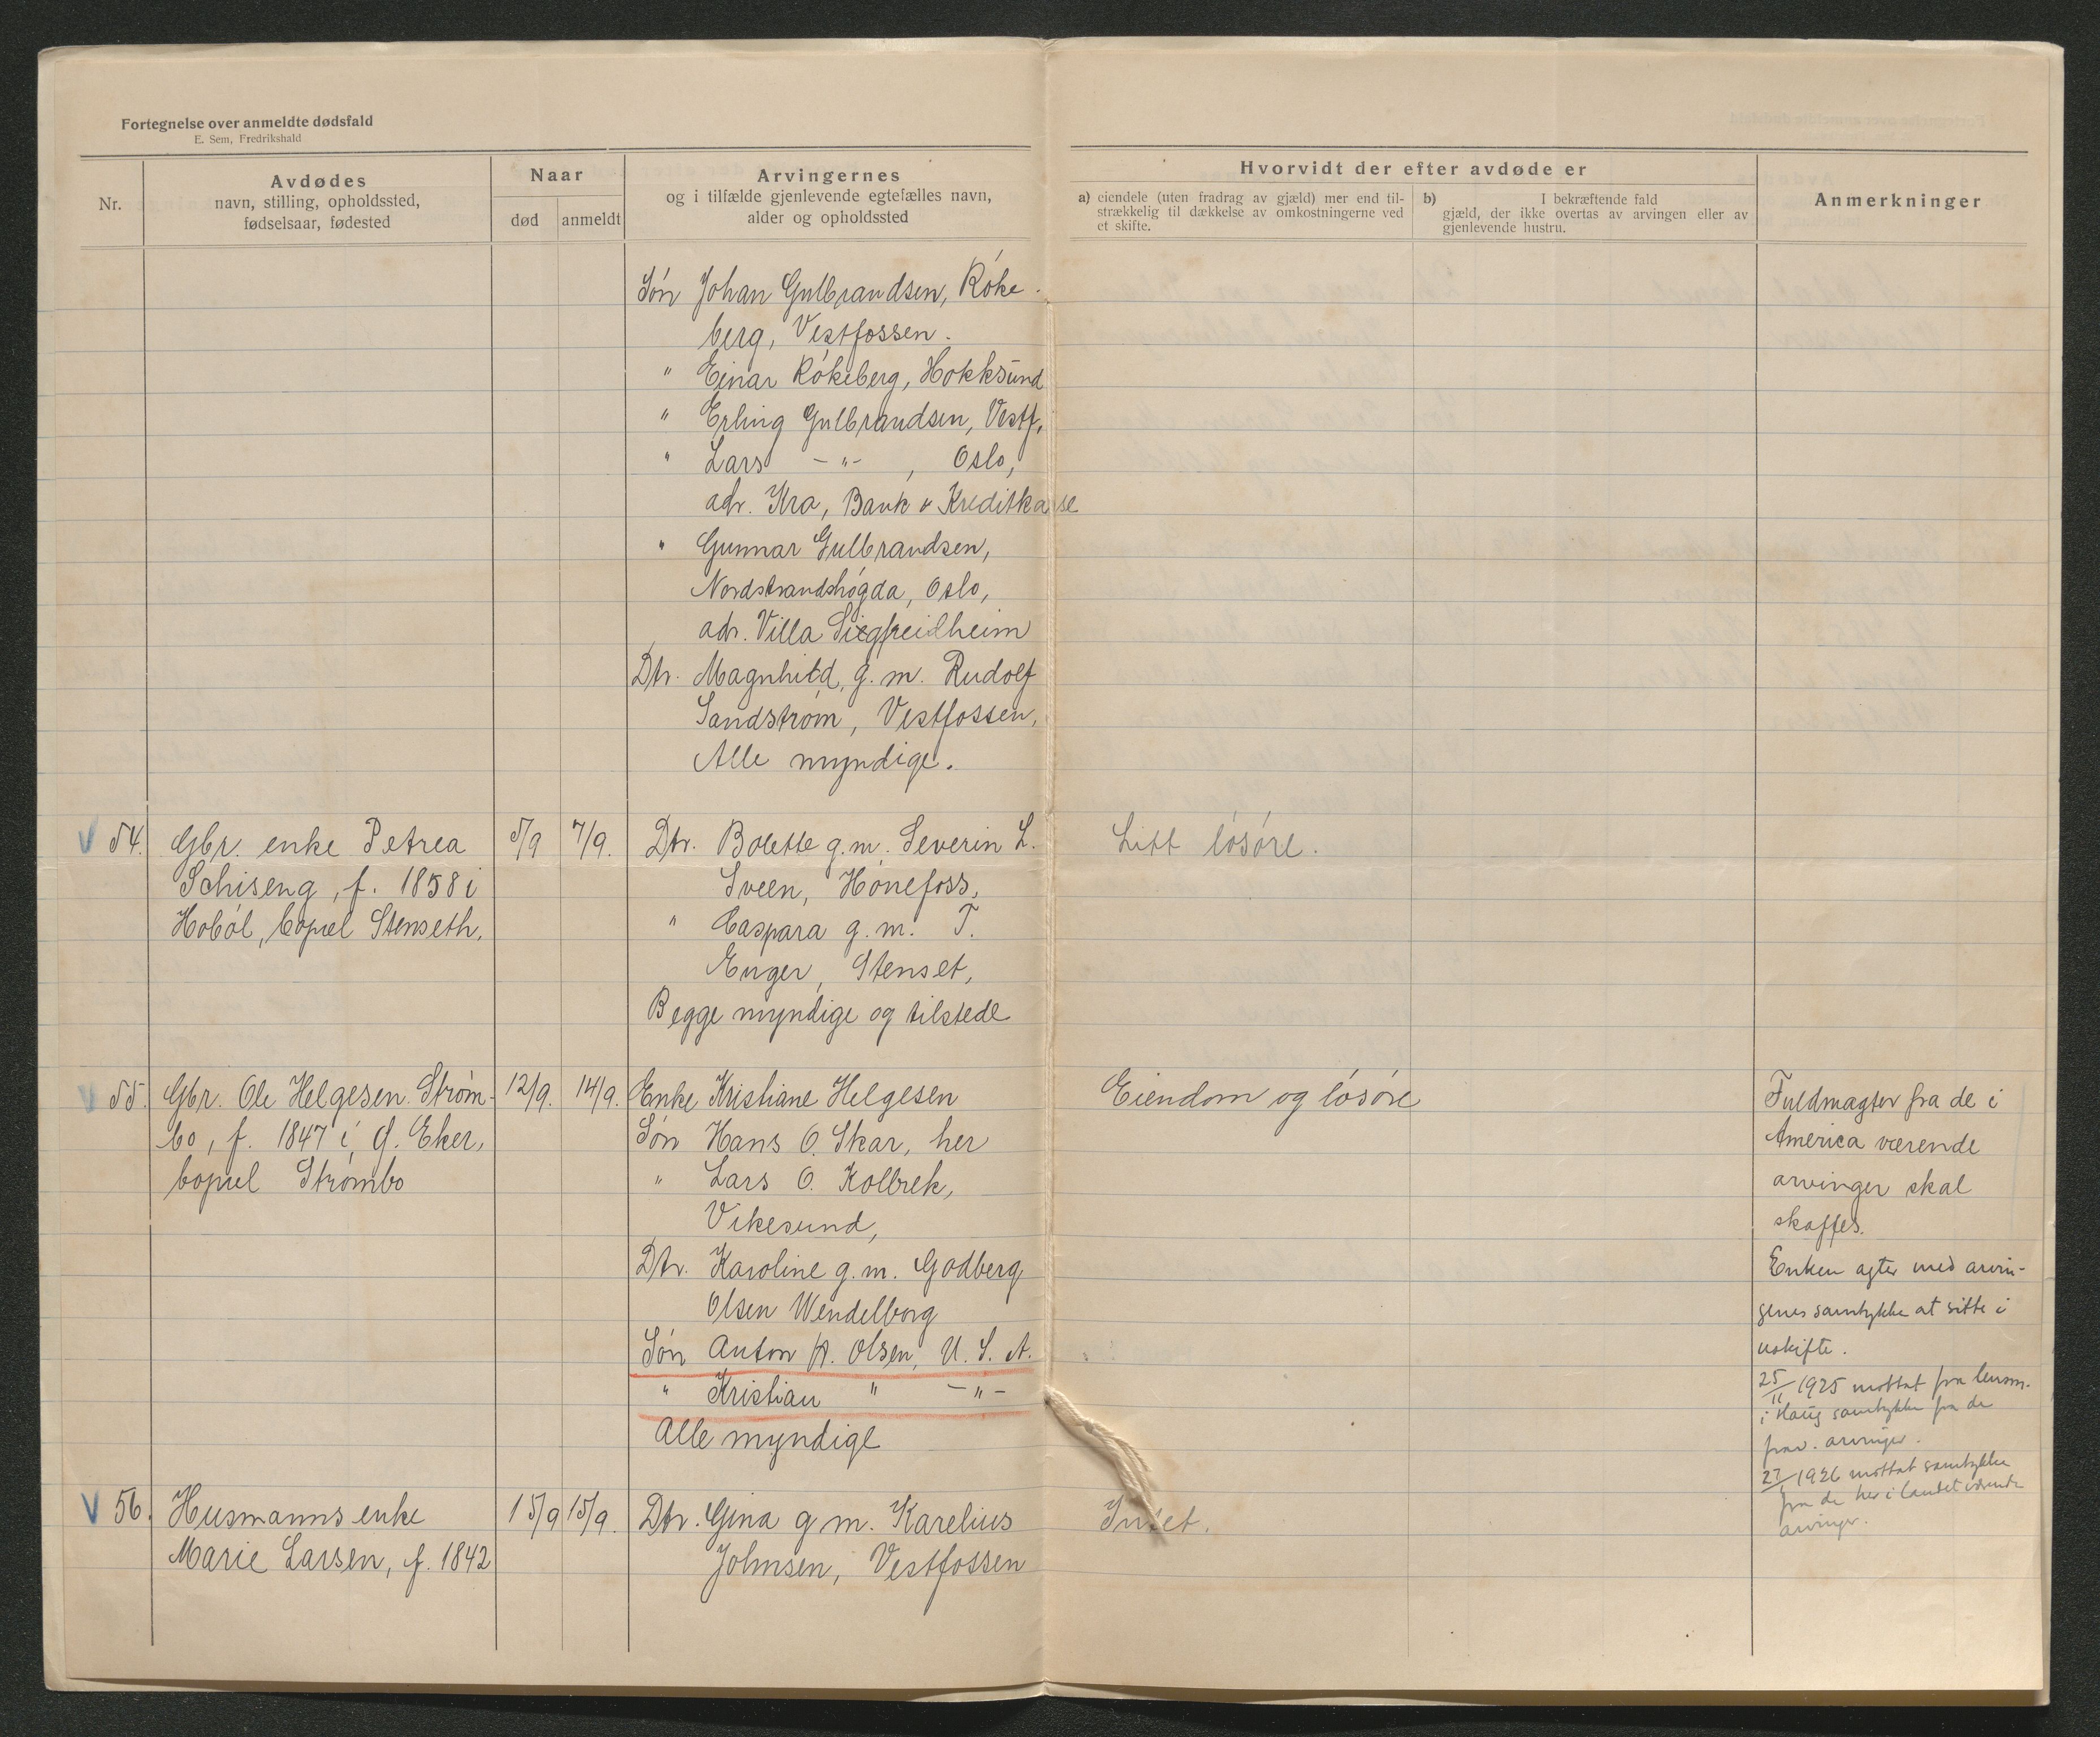 Fortegnelse over anmeldte dødsfald
E. Sem, Fredrikshald
Nr.
Avdødes
navn, stilling, opholdssted,
fødselsaar, fødested
Naar
død
anmeldt
Arvingernes
og i tilfælde gjenlevende egtefælles navn,
alder og opholdssted
Hvorvidt der efter avdøde er
a) eiendele (uten fradrag av gjæld) mer end til-
strækkelig til dækkelse av omkostningerne ved
et skifte.
b) I bekræftende fald
gjæld, der ikke overtas av arvingen eller av
gjenlevende hustru.
Anmerkninger
Søn Johan Gulbrandsen, Røke-
berg, Vestfossen.
" Einar Røkeberg, Hokksund
" Erling Gulbrandsen, Vestf.
" Lars -"- , Oslo,
adr. Kra, Bank & Kreditkasse
" Gunnar Gulbrandsen,
Nordstrandshøgda, Oslo,
adr. Villa Siegfreidheim
Dtr. Magnhild, g. m. Rudolf
Sandstrøm, Vestfossen,
Alle myndige.
V 54. Gbr. enke Petrea
Schiseng, f. 1858 i
Hobøl, bopæl Stenseth.
5/9 7/9.
Dtr. Bolette g.m. Severin L.
Sveen, Hønefoss,
" Caspara g. m. T.
Enger, Stenset,
Begge myndige og tilstede
Litt løsøre.
V 55. Gbr. Ole Helgesen Strøm-
bo, f. 1847 i Ø. Eker,
bopæl Strømbo
12/9. 14/9.
Enke Kristiane Helgesen
Søn Hans O. Skar, her
" Lars O. Kolbrek,
Vikesund,
Dtr. Karoline g. m. Godberg
Olsen Wendelborg
Søn Anton A. Olsen, U. S. A.
" Kristian " -"-
Alle myndige
Eiendom og løsøre
Fuldmagter fra de i
America værende
arvinger skal
skaffes.
Enken agter med arvin-
genes samtykke at sitte i
uskifte.
25/11 1925 mottat fra lensm.
i Haug samtykke fra de
frav. arvinger.
27/1 1926 mottat samtykke
fra de her i landet værende
arvinger.
V 56. Husmanns enke
Marie Larsen, f. 1842
15/9 15/9.
Dtr. Gina g m. Karelius
Johnsen, Vestfossen
Intet.